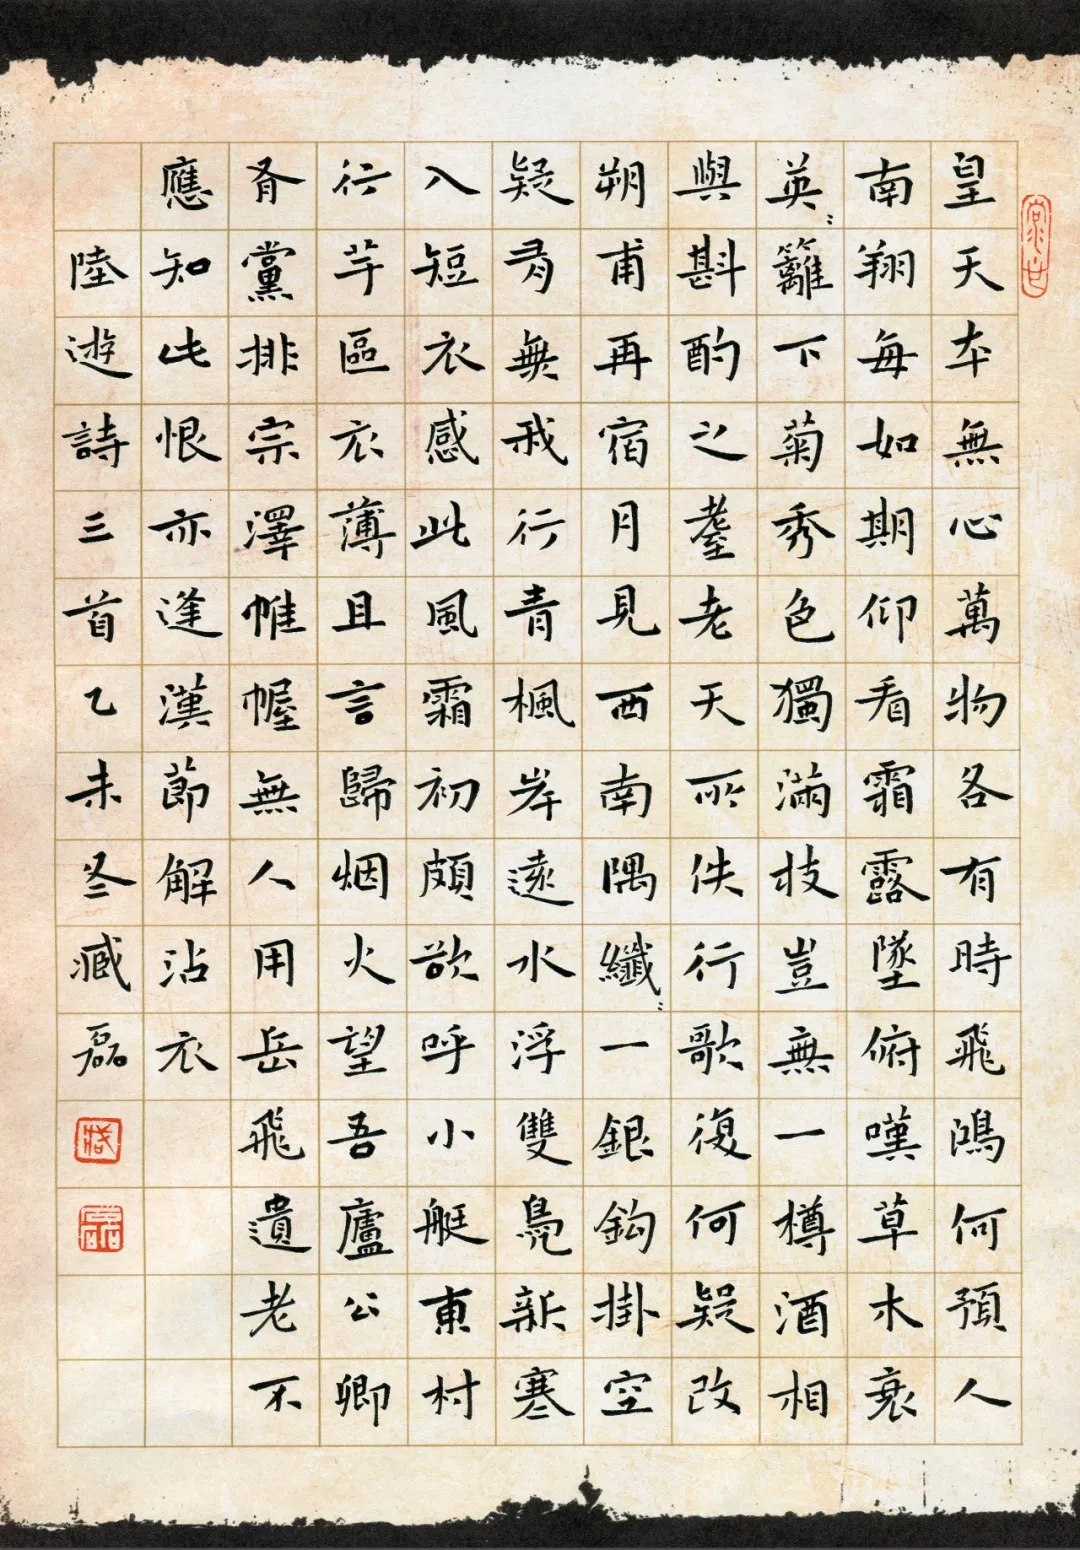 皇天夲無心萬物各有時飛鴻何預人
南翔每如期仰看霜露墜俯嘆草木衰
英〻籬下菊秀色獨滿枝豈無一樽酒相
與斟酌之耋老天所佚行歌復何疑改
朔甫再宿月見西南隅纖〻一銀鈎掛空
疑有無我行青楓岸遠水浮雙鳧新寒
入短衣感此風霜初頗欲呼小艇東村
行芋區衣薄且言歸烟火望吾廬公卿
有黨排宗澤帷幄無人用岳飛遺老不
應知此恨亦逢漢節解沾衣
陸遊詩三首乙未冬臧磊
臧
磊